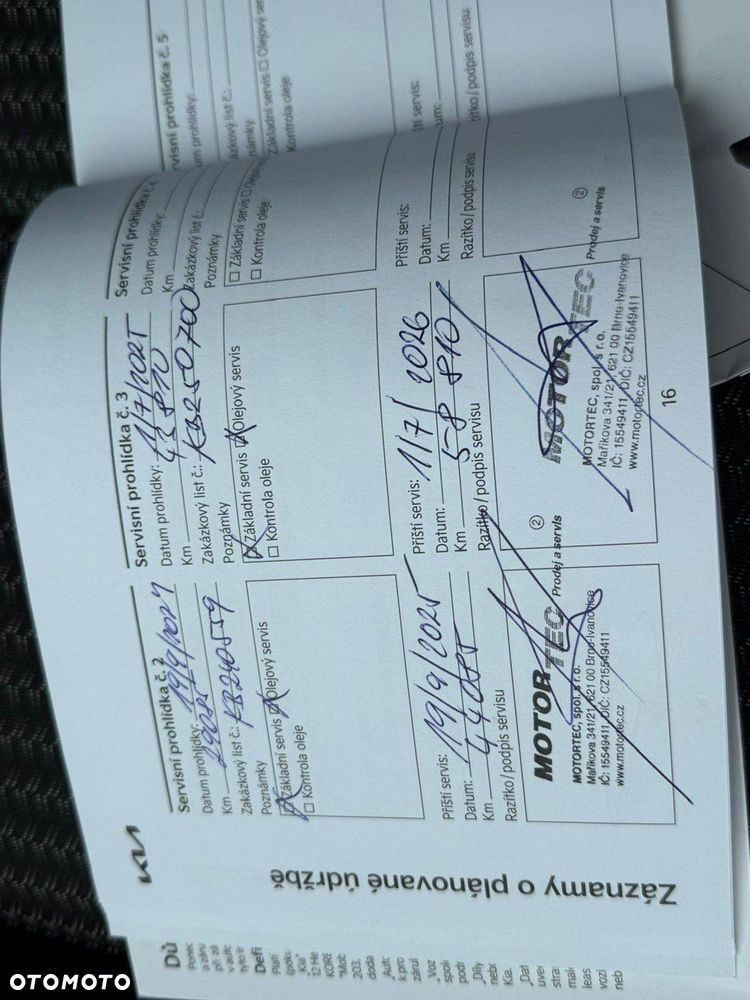 KIA
Záznamy o plánované údržbě
Servisní prohlídka č. 2
Datum prohlídky: 19/9/2024
Km
Zakázkový list č.: KB240559
Poznámky
Základní servis Olejový servis
Kontrola oleje
Příští servis:
Datum: 19/9/2025
Km
Razítko/podpis servisu
MOTORTEC
Prodej a servis
②
MOTORTEC, spol. s r.o.
Maříkova 341/21, 621 00 Brno-Ivanovice
IČ: 15549411, DIČ: CZ15549411
www.motortec.cz
Servisní prohlídka č. 3
Datum prohlídky: 1/7/2025
Km 43 810
Zakázkový list č.: KB250700
Poznámky
Základní servis Olejový servis
Kontrola oleje
Příští servis:
Datum: 1/7/2026
Km 58 810
Razítko/podpis servisu
MOTORTEC
Prodej a servis
②
MOTORTEC, spol. s r.o.
Maříkova 341/21, 621 00 Brno-Ivanovice
IČ: 15549411, DIČ: CZ15549411
www.motortec.cz
16
Servisní prohlídka č.
Datum prohlídky:
Km
Zakázkový list č.:
Poznámky
Základní servis
Kontrola oleje
Příští servis:
Datum:
Km
Razítko/podpis servisu
prohlídka č. 5
prohlídky:
list č.:
Základní servis Olejový
Kontrola oleje
servis:
podpis servisu
Dů
Defi
OTOMOTO